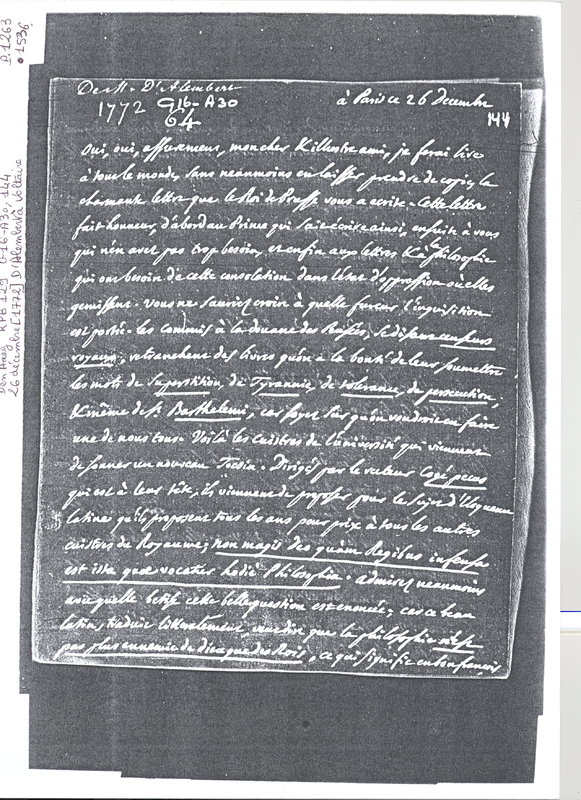 P.1263
• 1536
Den Haag RPB 129 G16-A30, 144
26 décembre [1772] D'Alembert à Voltaire
De M. D'Alembert
1772 G16-A30
64
à Paris ce 26 decembre
144
Oui, oui, assurement, mon cher & illustre ami, je ferai lire
à tout le monde, sans neanmoins en laisser prendre de copie, la
charmante lettre que le Roi de Prusse vous a ecrite. Cette lettre
fait honneur, d'abord au Prince qui sait ecrire ainsi, ensuite à vous
qui n'en avez pas trop besoin, et enfin aux lettres & à la philosophie
qui ont besoin de cette consolation dans l'état d'oppression où elles
gemissent. Vous ne sauriez croire à quelle fureur l'inquisition
est portée. les commis à la douane des pensées, se disant censeurs
royaux, retranchent des livres qu'on a la bonté de leur soumettre
les mots de superstition, de Tyrannie, de tolerance, de persecution,
& même de St. Barthelemi; car soyez sûr qu'on voudroit en faire
une de nous tous. Voilà les cuistres de l'université qui viennent
de sonner un nouveau Tocsin. Dirigés par le recteur Cogé pecus
qui est à leur tête, ils viennent de proposer pour le sujet d'Eloquence
latine qu'ils proposent tous les ans pour prix à tous les autres
cuistres du Royaume; non magis deo quàm Regibus infensa
est ista quæ vocatur hodie Philosophia. admirez neanmoins
avec quelle betise cette belle question est enoncée; car ce beau
latin, traduit litteralement, veut dire que la philosophie n'est
pas plus ennemie de dieu que des Rois, ce qui signifie en bon françois